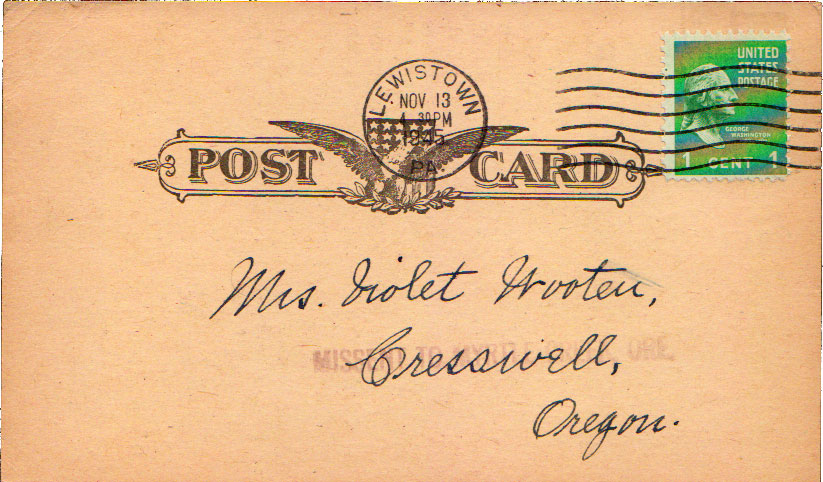 LEWISTOWN
NOV 13
4 30PM
1945
PA.
UNITED
STATES
POSTAGE
GEORGE
WASHINGTON
1 CENT 1
POST CARD
Mrs. Violet Wooten,
MISSENT TO ORE.
Cresswell,
Oregon.